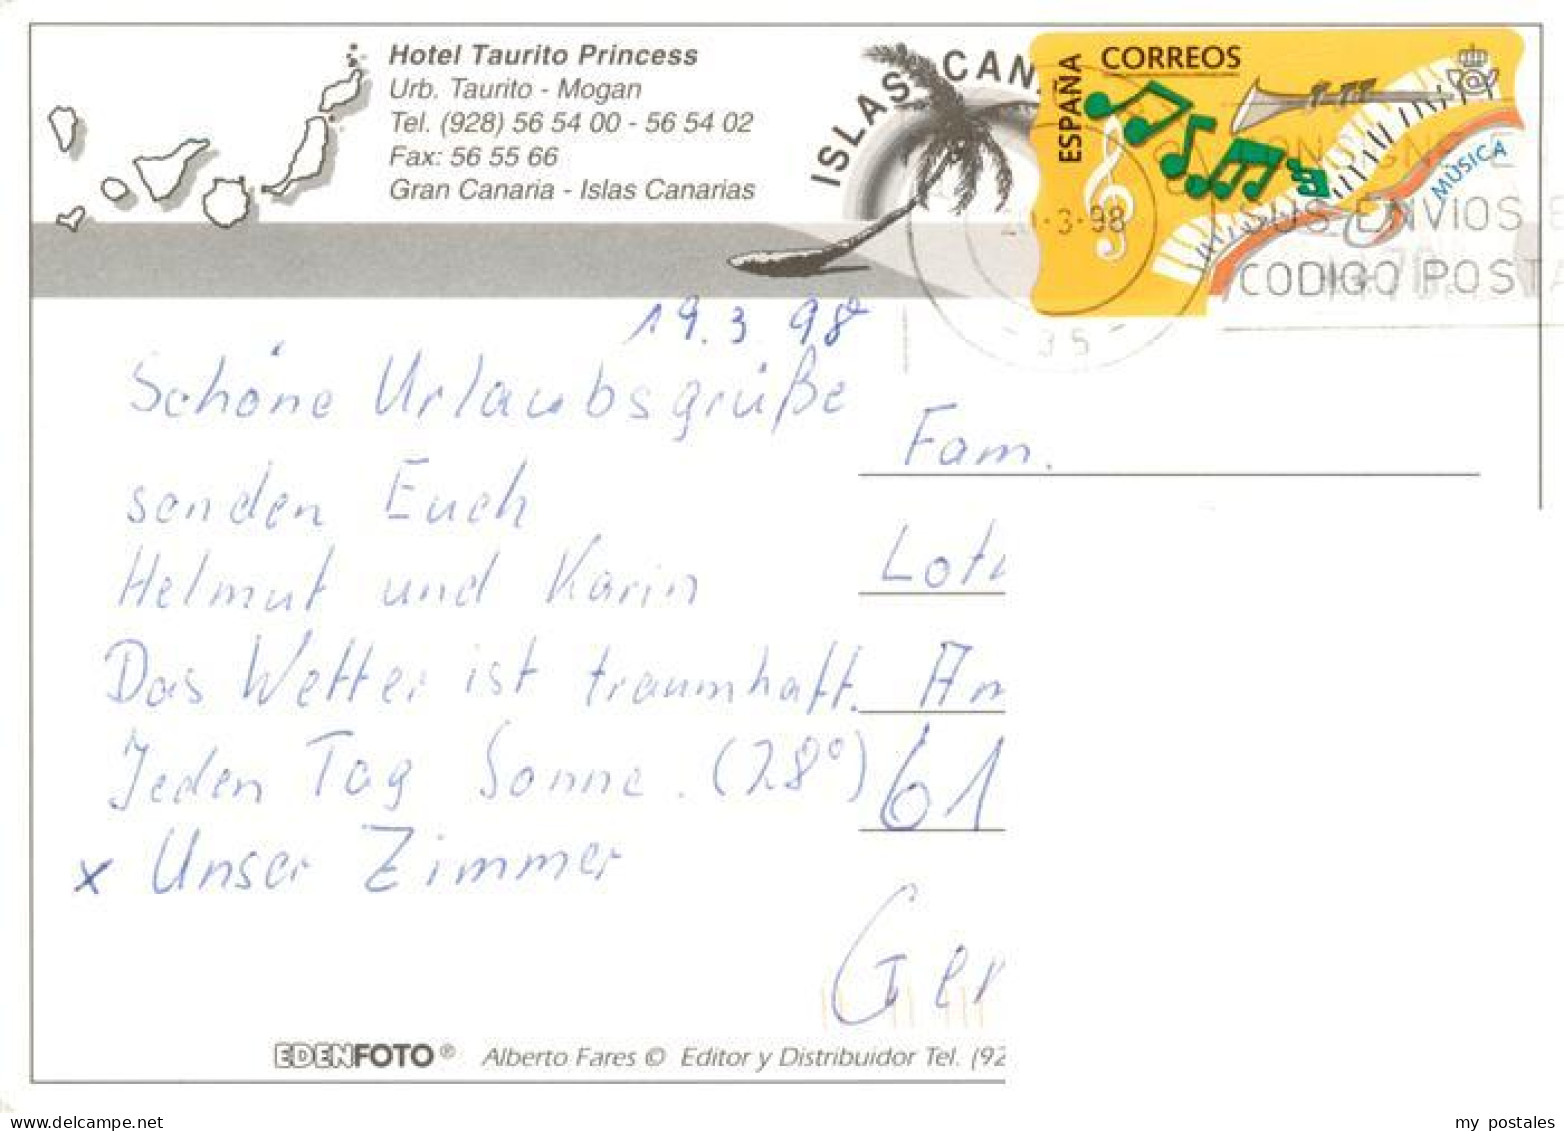 Hotel Taurito Princess
Urb. Taurito - Mogan
Tel. (928) 56 54 00 - 56 54 02
Fax: 56 55 66
Gran Canaria - Islas Canarias
ISLAS CAN
ESPAÑA
CORREOS
MÚSICA
20.3.98
35
SUS ENVIOS
CODIGO POSTA
19.3.98
Schöne Urlaubsgrüße
senden Euch
Helmut und Karin
Das Wetter ist traumhaft.
Jeden Tag Sonne. (28°)
x Unser Zimmer
Fam.
Am
61
Ger
EDENFOTO® Alberto Fares © Editor y Distribuidor Tel. (92
my postales